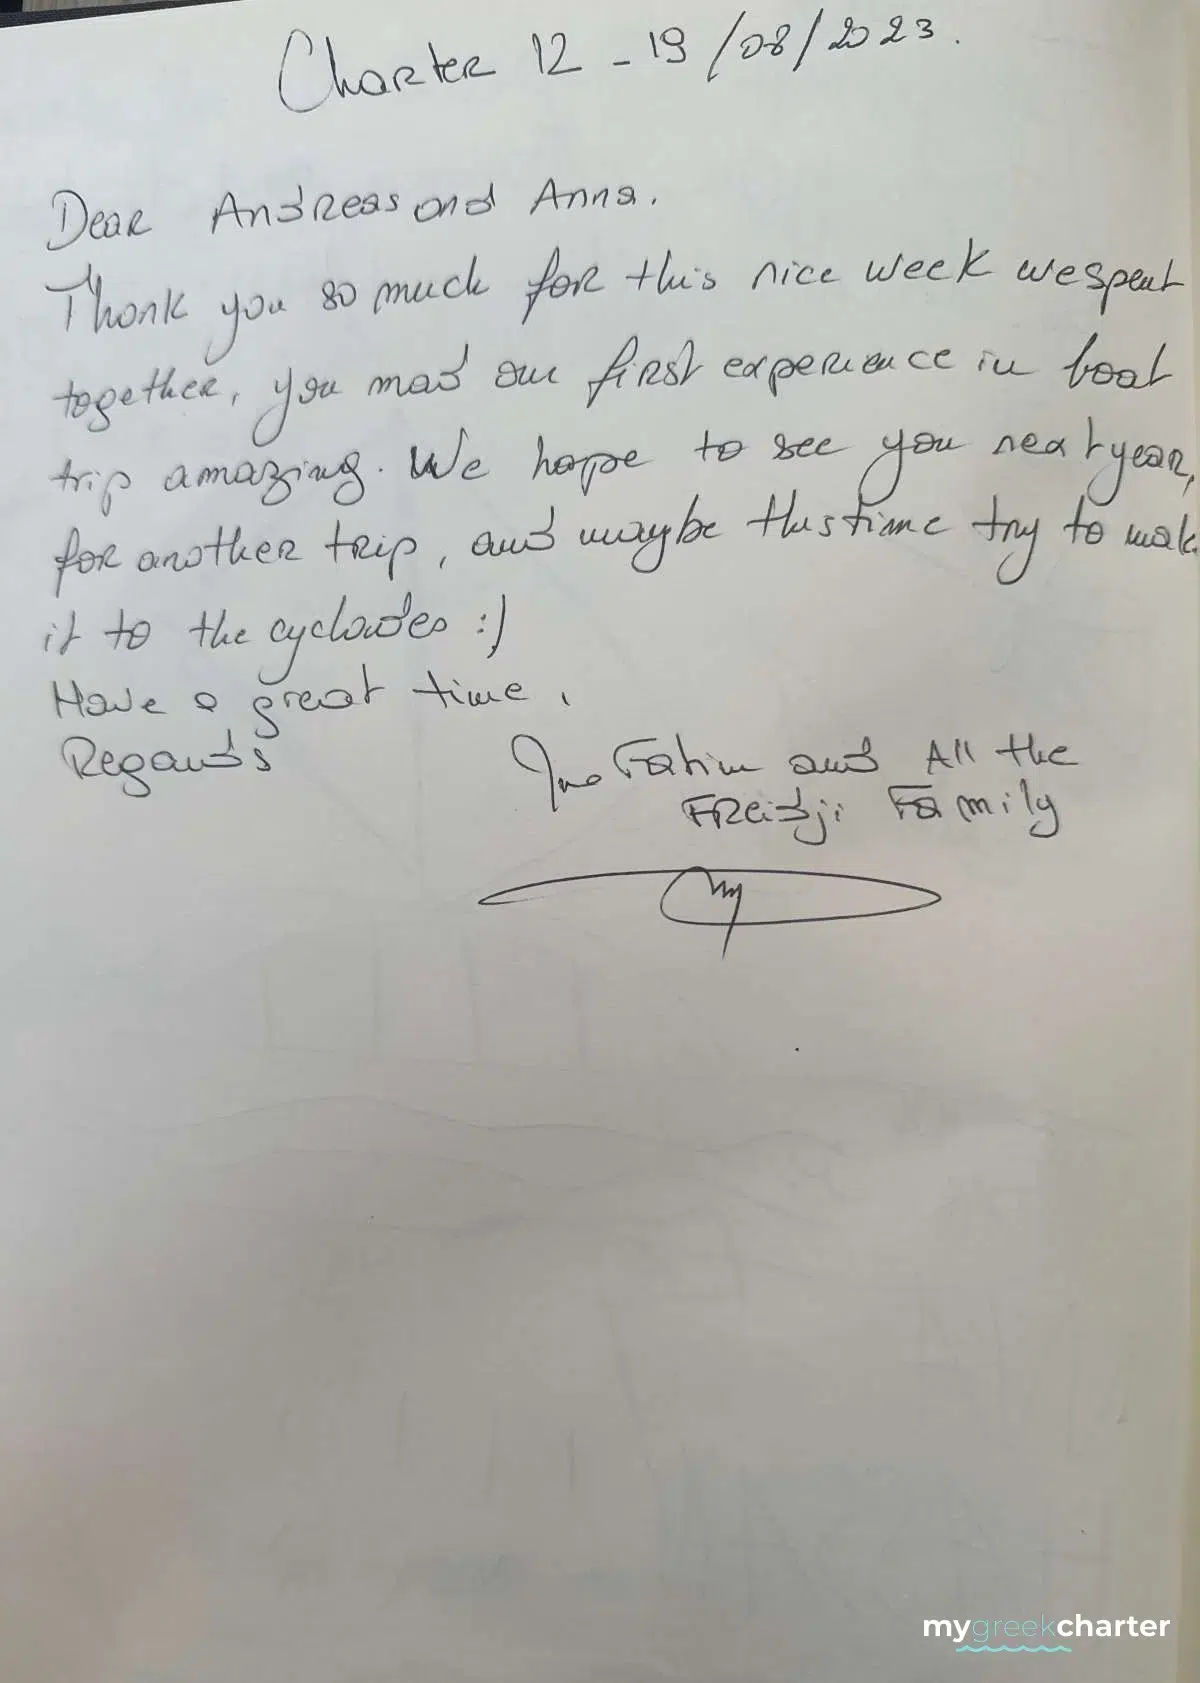 Charter 12 - 19 / 08 / 2023.
Dear Andreas and Anna.
Thank you so much for this nice week we spent
together, you mad our first experience in boat
trip amazing. We hope to see you next year,
for another trip, and maybe this time try to make
it to the cyclades :)
Have a great time.
Regards
Fatim and All the
Freidji Family
mygreekcharter